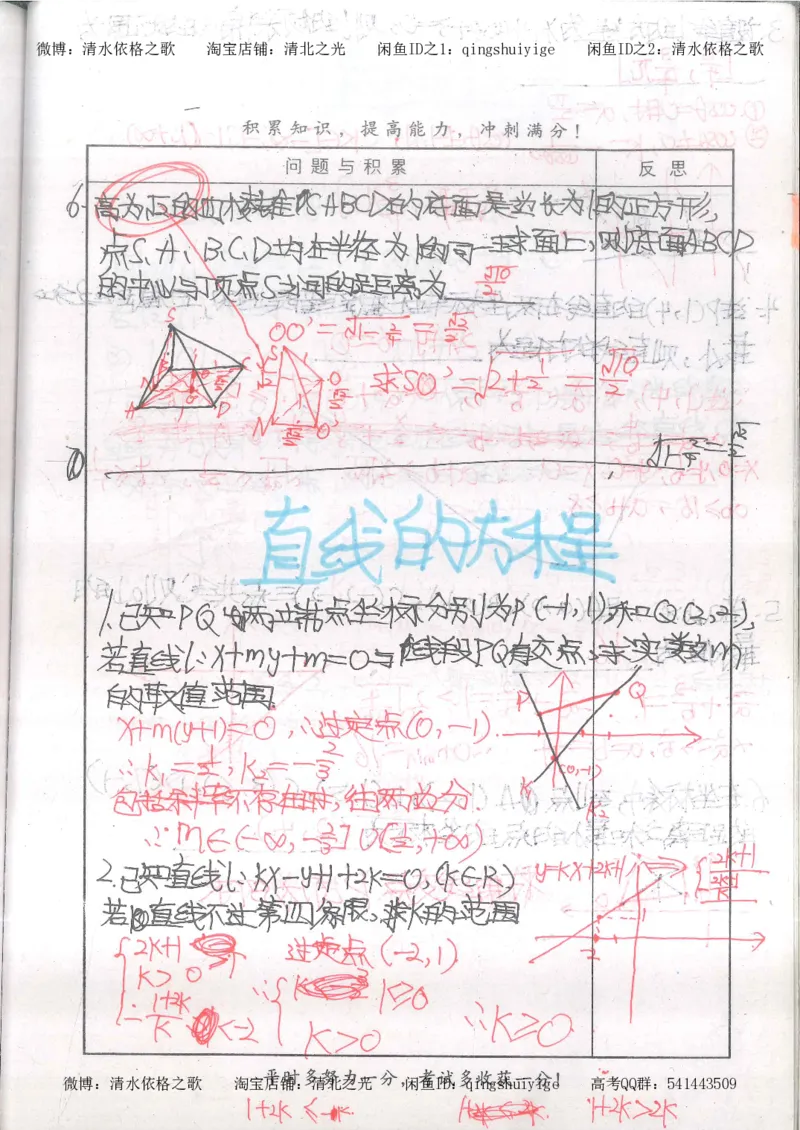 微博：清水依格之歌 淘宝店铺：清北之光 闲鱼ID之1：qingshuiyige 闲鱼ID之2：清水依格之歌
积累知识，提高能力，冲刺满分！
问题与积累 反思
6. 高为√2的四棱锥S-ABCD的底面是边长为1的正方形，
点S、A、B、C、D均在半径为1的同一球面上，则底面ABCD
的中心与顶点S之间的距离为 √10/2
OO'=√(1-2/4)=√2/2
求SO'=√(2+1/2)=√10/2
直线的方程
1.已知PQ的两端点坐标分别为P(-1,1)和Q(2,2),
若直线l:x+my+m=0与线段PQ有交点,求实数m
的取值范围
x+m(y+1)=0,∴过定点(0,-1).
P Q
(0,-1)
K₂
包括斜率不存在时,往两边分
2.已知直线l:kx-y+1+2k=0,(k∈R)
若直线不过第四象限,求k的范围
y=kx+2k+1
2k+1
过定点(-2,1)
k>0
k≥0
k>0
∴k≥0
-2
平时多努力一分，考试多收获一分！
微博：清水依格之歌 淘宝店铺：清北之光 闲鱼ID：qingshuiyige 高考QQ群：541443509
1+2k>2k